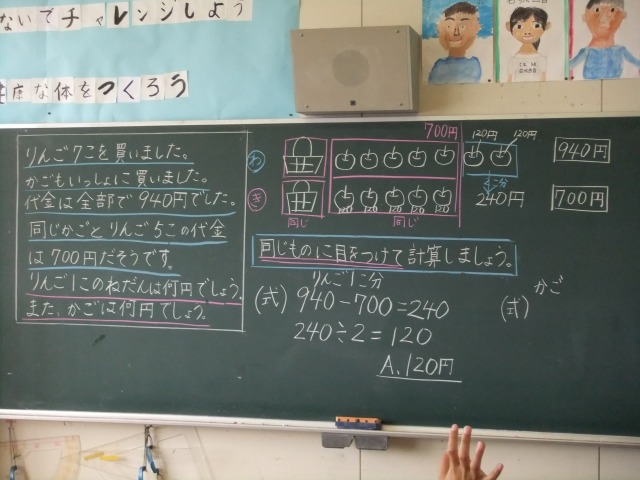 ないでチャレンジしよう
な体をつくろう
りんご7こを買いました。
かごもいっしょに買いました。
代金は全部で940円でした。
同じかごとりんご5この代金
は700円だそうです。
りんご1このねだんは何円でしょう。
また、かごは何円でしょう。
700円
120円 120円
わ
940円
2こ分
き
120 120 120 120 120
240円
700円
同じ 同じ
同じものに目をつけて計算しましょう。
りんご1こ分
(式) 940-700=240
240÷2=120
A.120円
かご
(式)